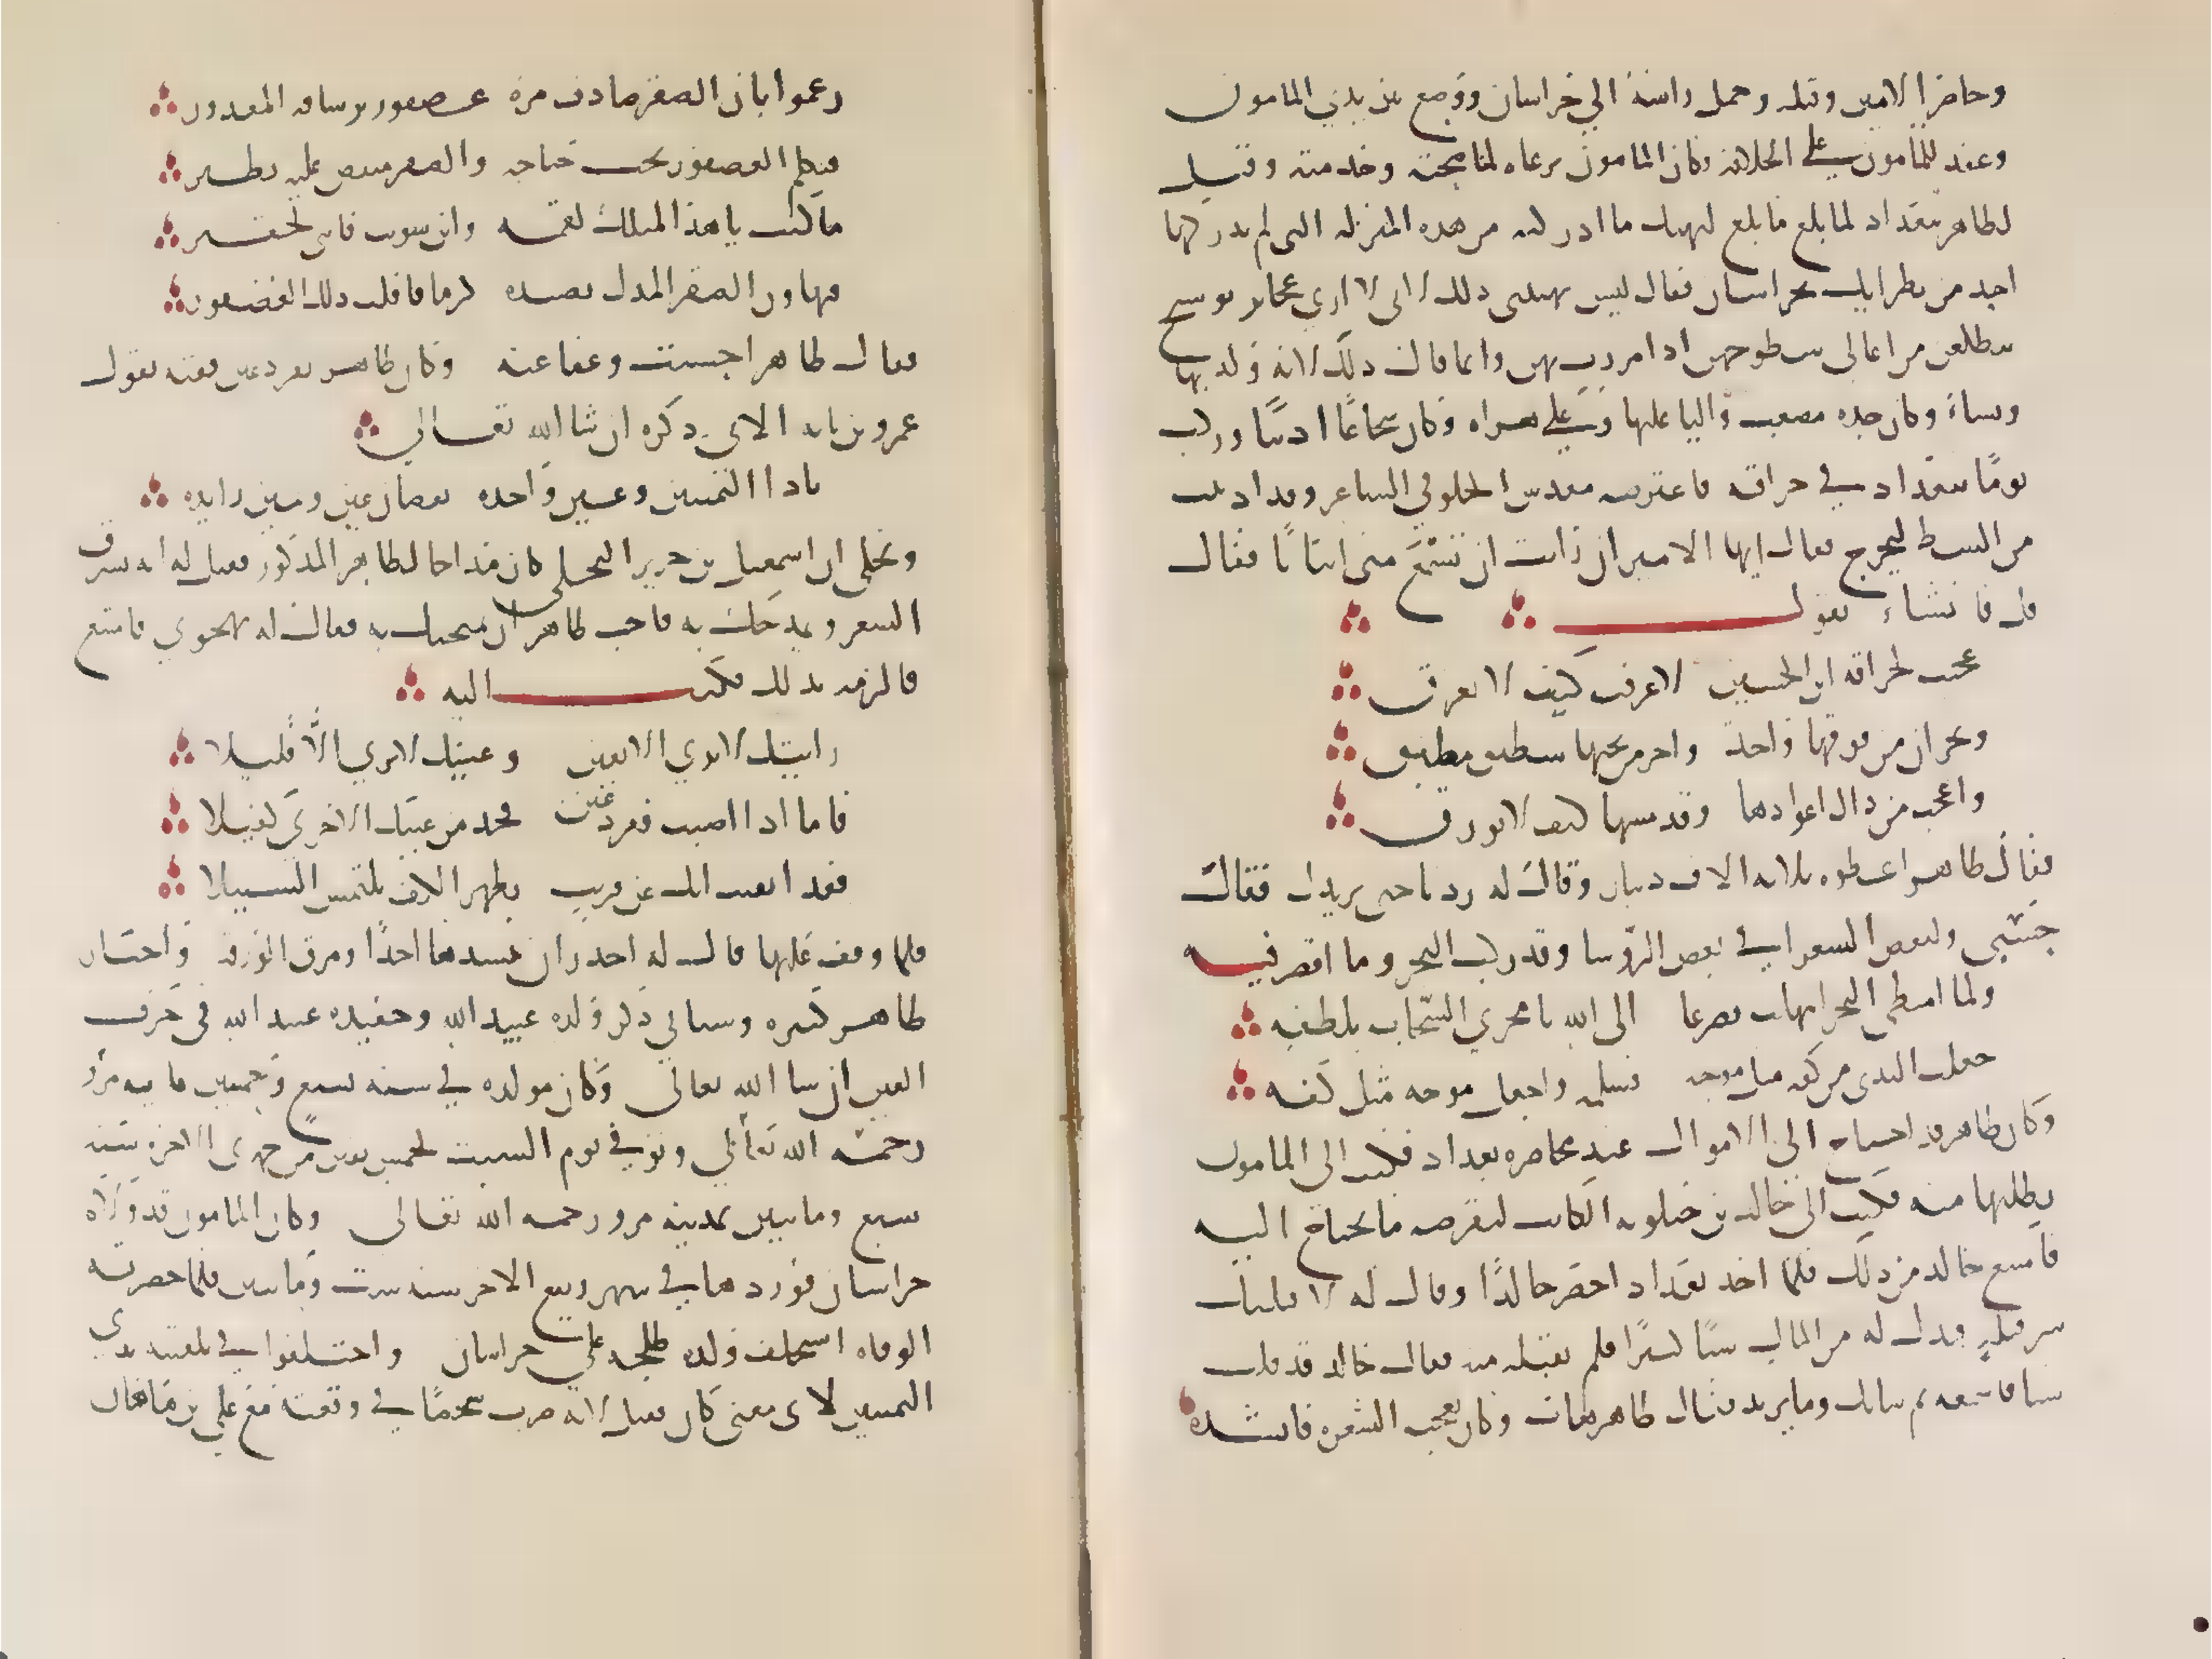 وحاصر الامين وقتله وحمل راسه الي خراسان ووضع بين يدي المامون
وعقد للمامون علي الخلافة وكان المامون يرعاه لمناصحته وخدمته وقيل
لطاهر ببغداد لما بلغ ما بلغ ليهنك ما ادركته من هذه المنزله التي لم يدركها
احد من نظرايك بخراسان فقال ليس يهنيني ذلك لاني لا اري عجايز بوشنج
يتطلعن من اعالي سطوحهن اذا مررت بهن وانما قال ذلك لانه ولد بها
ونشاء وكان جده مصعب واليا عليها وعلي هراه وكان شجاعًا اديبًا وركب
يومًا ببغداد في حراقته فاعترضه مقدس الخلوقي الشاعر وقد ادنيت
من الشط ليخرج فقال ايها الامير ان رايت ان تسمع مني ابياتًا فقال
قل فانشاء يقول
عجبت لحراقة ابن الحسين لا غرقت كيف لا تغرق
وبحران من فوقها واحد واخر من تحتها مطبق
واعجب من ذاك اعوادها وقد مسها كيف لا تورق
فقال طاهر اعطوه ثلاثة الاف دينار وقال له زدنا حتي نزيدك فقال
حسبي ولبعض الشعرا في بعض الروسا وقد ركب البحر وما اقصر فيه
ولما امتطى البحر ابتهلت تضرعا الى الله يا مجري الرياح بلطفه
جعلت الندى من كفه مثل موجه فسلمه واجعل موجه مثل كفه
وكان طاهر قد احتاج الى الاموال عند محاصره بغداد فكتب الى المامون
يطلبها منه فكتب الى خالد بن جيلويه الكاتب ليقرضه ما يحتاج اليه
فامتنع خالد من ذلك فلما اخذ بغداد احضر خالدًا وقال له لاقتلنك
شر قتلة فبذل له من المال شيًا كثيرًا فلم يقبله منه فقال خالد قد قلت
شيا فاسمعه ثم شانك وما تريد فقال طاهر هات وكان يعجبه الشعر فانشده
زعموا بان الصقر صادف مرة عصفور بر ساقه المقدور
فتكلم العصفور تحت جناحه والصقر منقض عليه يطير
ما كنت يا هذا لمثلك لقمة ولين شويت فانني لحقير
فتهاون الصقر المدل بصيده كرما فافلت ذلك العصفور
فقال طاهر احسنت وعفا عنه وكان طاهر بفرد عين وفيه يقول
عمرو بن بانة الاتي ذكره ان شا الله تعالي
يا ذا اليمينين وعين واحده نقصان عين ويمين زايده
ويحكي ان اسمعيل بن جرير البجلي كان مداحا لطاهر المذكور فقيل له انه يسرق
الشعر ويمدحك به فاحب طاهر ان يمتحنه به فقال له تهجوني فامتنع
فالزمه بذلك فكتب اليه
رايتك لا تري الا بعين وعينك لا تري الا قليلا
فاما اذا اصبت بفرد عين فخذ من عينك الاخري كفيلا
فقد ايقنت انك عن قريب بظهر الكف تلتمس السبيلا
فلما وقف عليها قال له احذر ان تنشدها احدًا ومزق الورقة واخبار
طاهر كثيره وسياتي ذكر ولده عبد الله وحفيده عبيد الله في حرف
العين ان شا الله تعالى وكان مولده في سنه تسع وخمسين ومايه مرو
رحمه الله تعالي وتوفي يوم السبت لخمس بقين من جمدى الاخرة سنه
سبع ومايتين بمدينه مرو رحمه الله تعالى وكان المامون قد ولاه
خراسان فوردها في شهر ربيع الاخر سنه ست ومايتين فلما حضرته
الوفاه استخلف ولده طلحه علي خراسان واختلفوا في تلقيبه بذي
اليمينين لاى معنى كان فقيل لانه ضرب شخصًا في وقعته مع علي بن ماهان